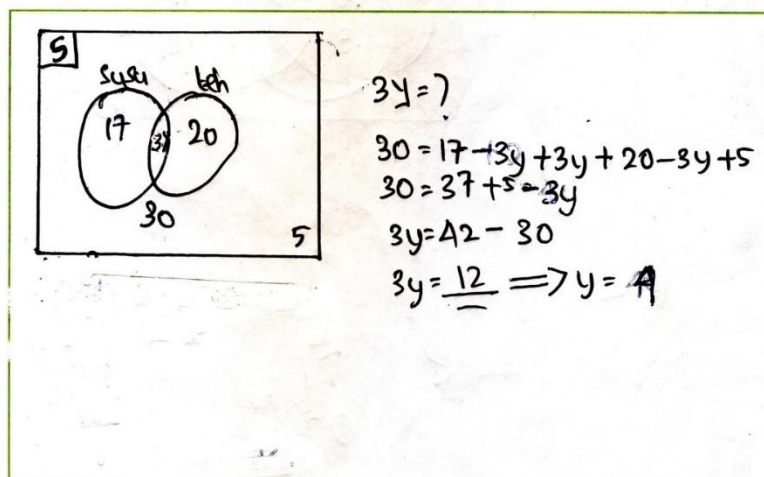 S
susu teh
17 3y 20
30
5
3y=?
30=17-3y+3y+20-3y+5
30=37+5-3y
3y=42-30
3y=12 => y=4